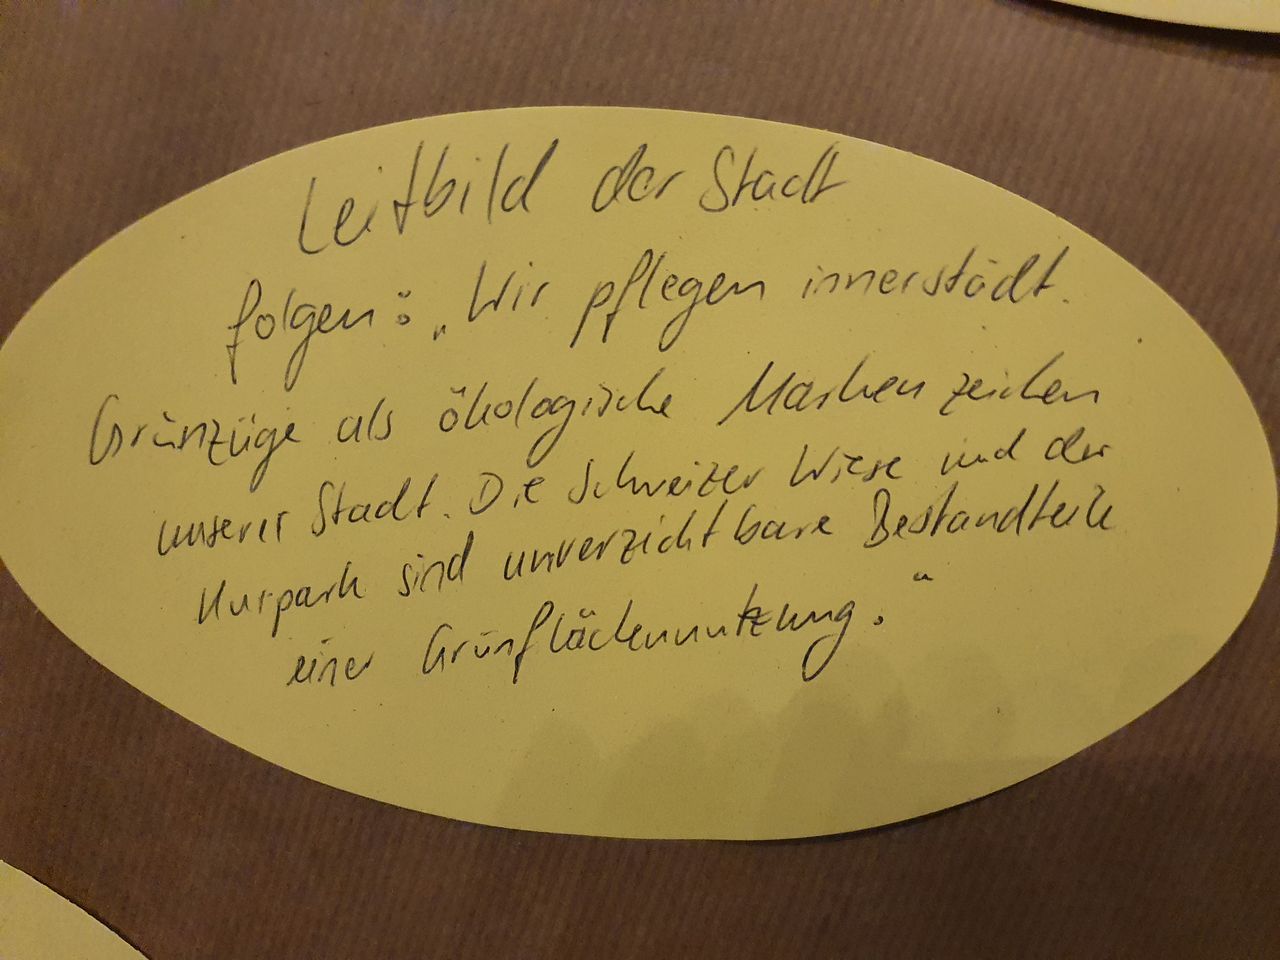 Leitbild der Stadt
folgen: „Wir pflegen innerstädt.
Grünzüge als ökologische Markenzeichen
unserer Stadt. Die Schweizer Wiese und der
Kurpark sind unverzichtbare Bestandteile
einer Grünflächennutzung.“